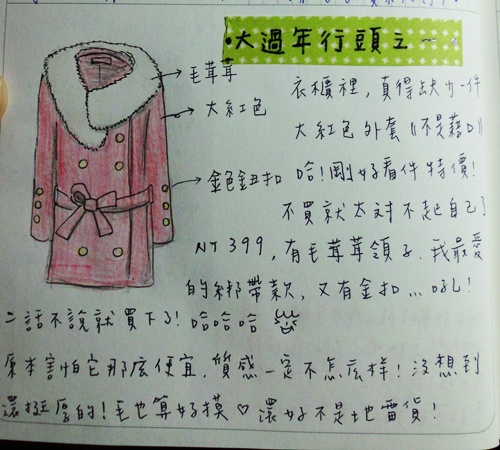 •大過年行頭之一
毛茸茸
大紅色
金色鈕扣
衣櫃裡，真得缺少一件
大紅色外套《不是藉口》
哈！剛好看件特價！
不買就太対不起自己了
NT 399，有毛茸茸領子，我最愛
的綁帶款，又有金扣...吼！
二話不說就買下了！哈哈哈
原本害怕它那庅便宜，質感一定不怎庅樣！沒想到
還挺厚的！毛也算好摸♡還好不是地雷貨！